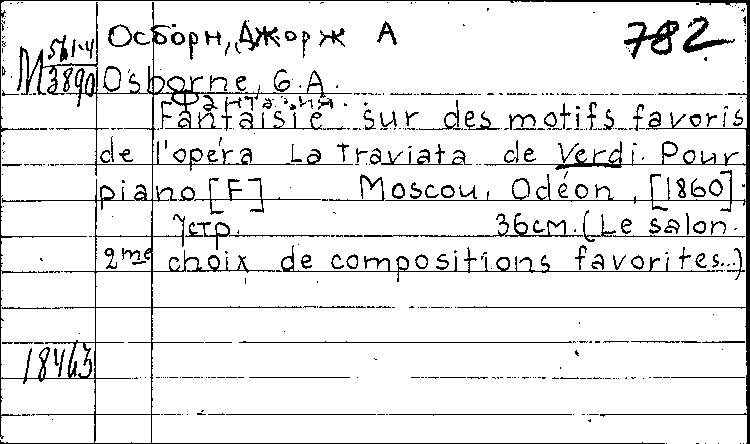 Осборн, Джорж А 782
М 561-4
3890 Osborne, G.A.
Фантазия.
Fantaisie sur des motifs favoris
de l'opéra La Traviata de Verdi. Pour
piano [F] Moscou, Odéon, [1860];
7стр. 36см. (Le salon.
2me choix de compositions favorites...)
18463